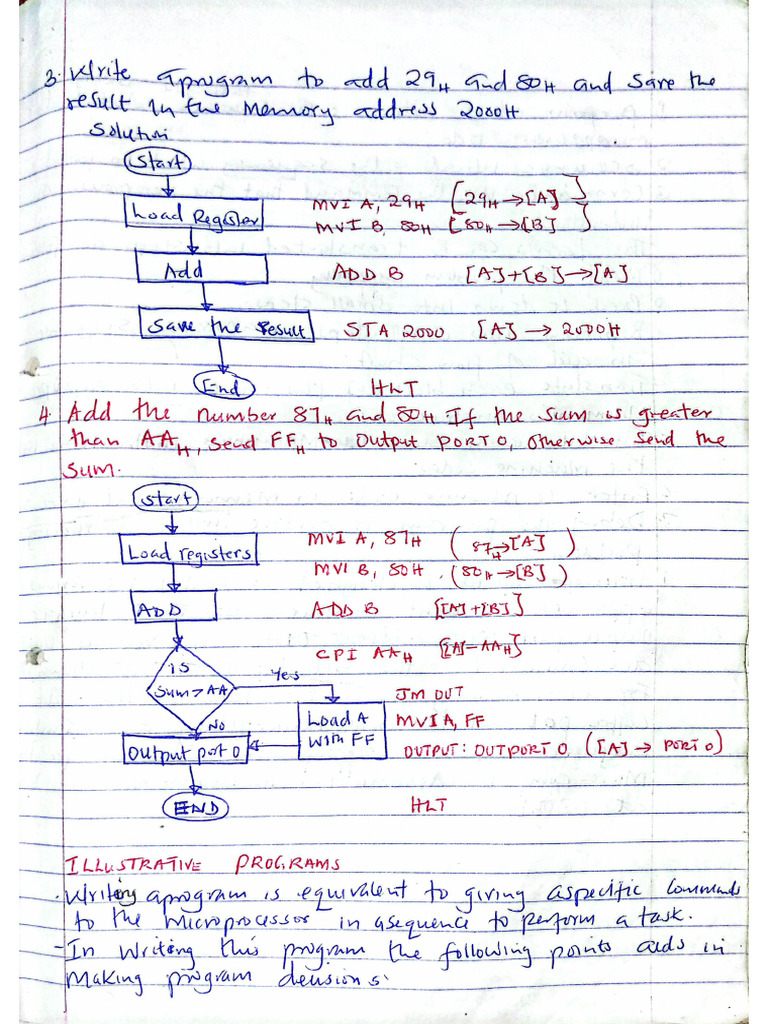 3. Write a program to add 29H and 80H and save the
result in the Memory address 2000H
Solution
Start
Load Register
MVI A, 29H [29H → [A]]
MVI B, 80H [80H → [B]]
Add
ADD B [A]+[B] → [A]
Save the result
STA 2000 [A] → 2000H
End
HLT
4. Add the number 87H and 80H If the sum is greater
than AAH, send FFH to output PORT 0, otherwise send the
sum.
start
Load registers
MVI A, 87H (87H → [A])
MVI B, 80H (80H → [B])
ADD
ADD B [[A]+[B]]
CPI AAH [[A]-AAH]
is
sum > AA
Yes
No
JM OUT
Load A
with FF
MVI A, FF
Output port 0
OUTPUT: OUTPORT 0 ([A] → PORT 0)
END
HLT
ILLUSTRATIVE PROGRAMS
. Writing a program is equivalent to giving a specific Commands
to the microprocessor in a sequence to perform a task.
- In writing this program the following points aids in
Making program decisions: